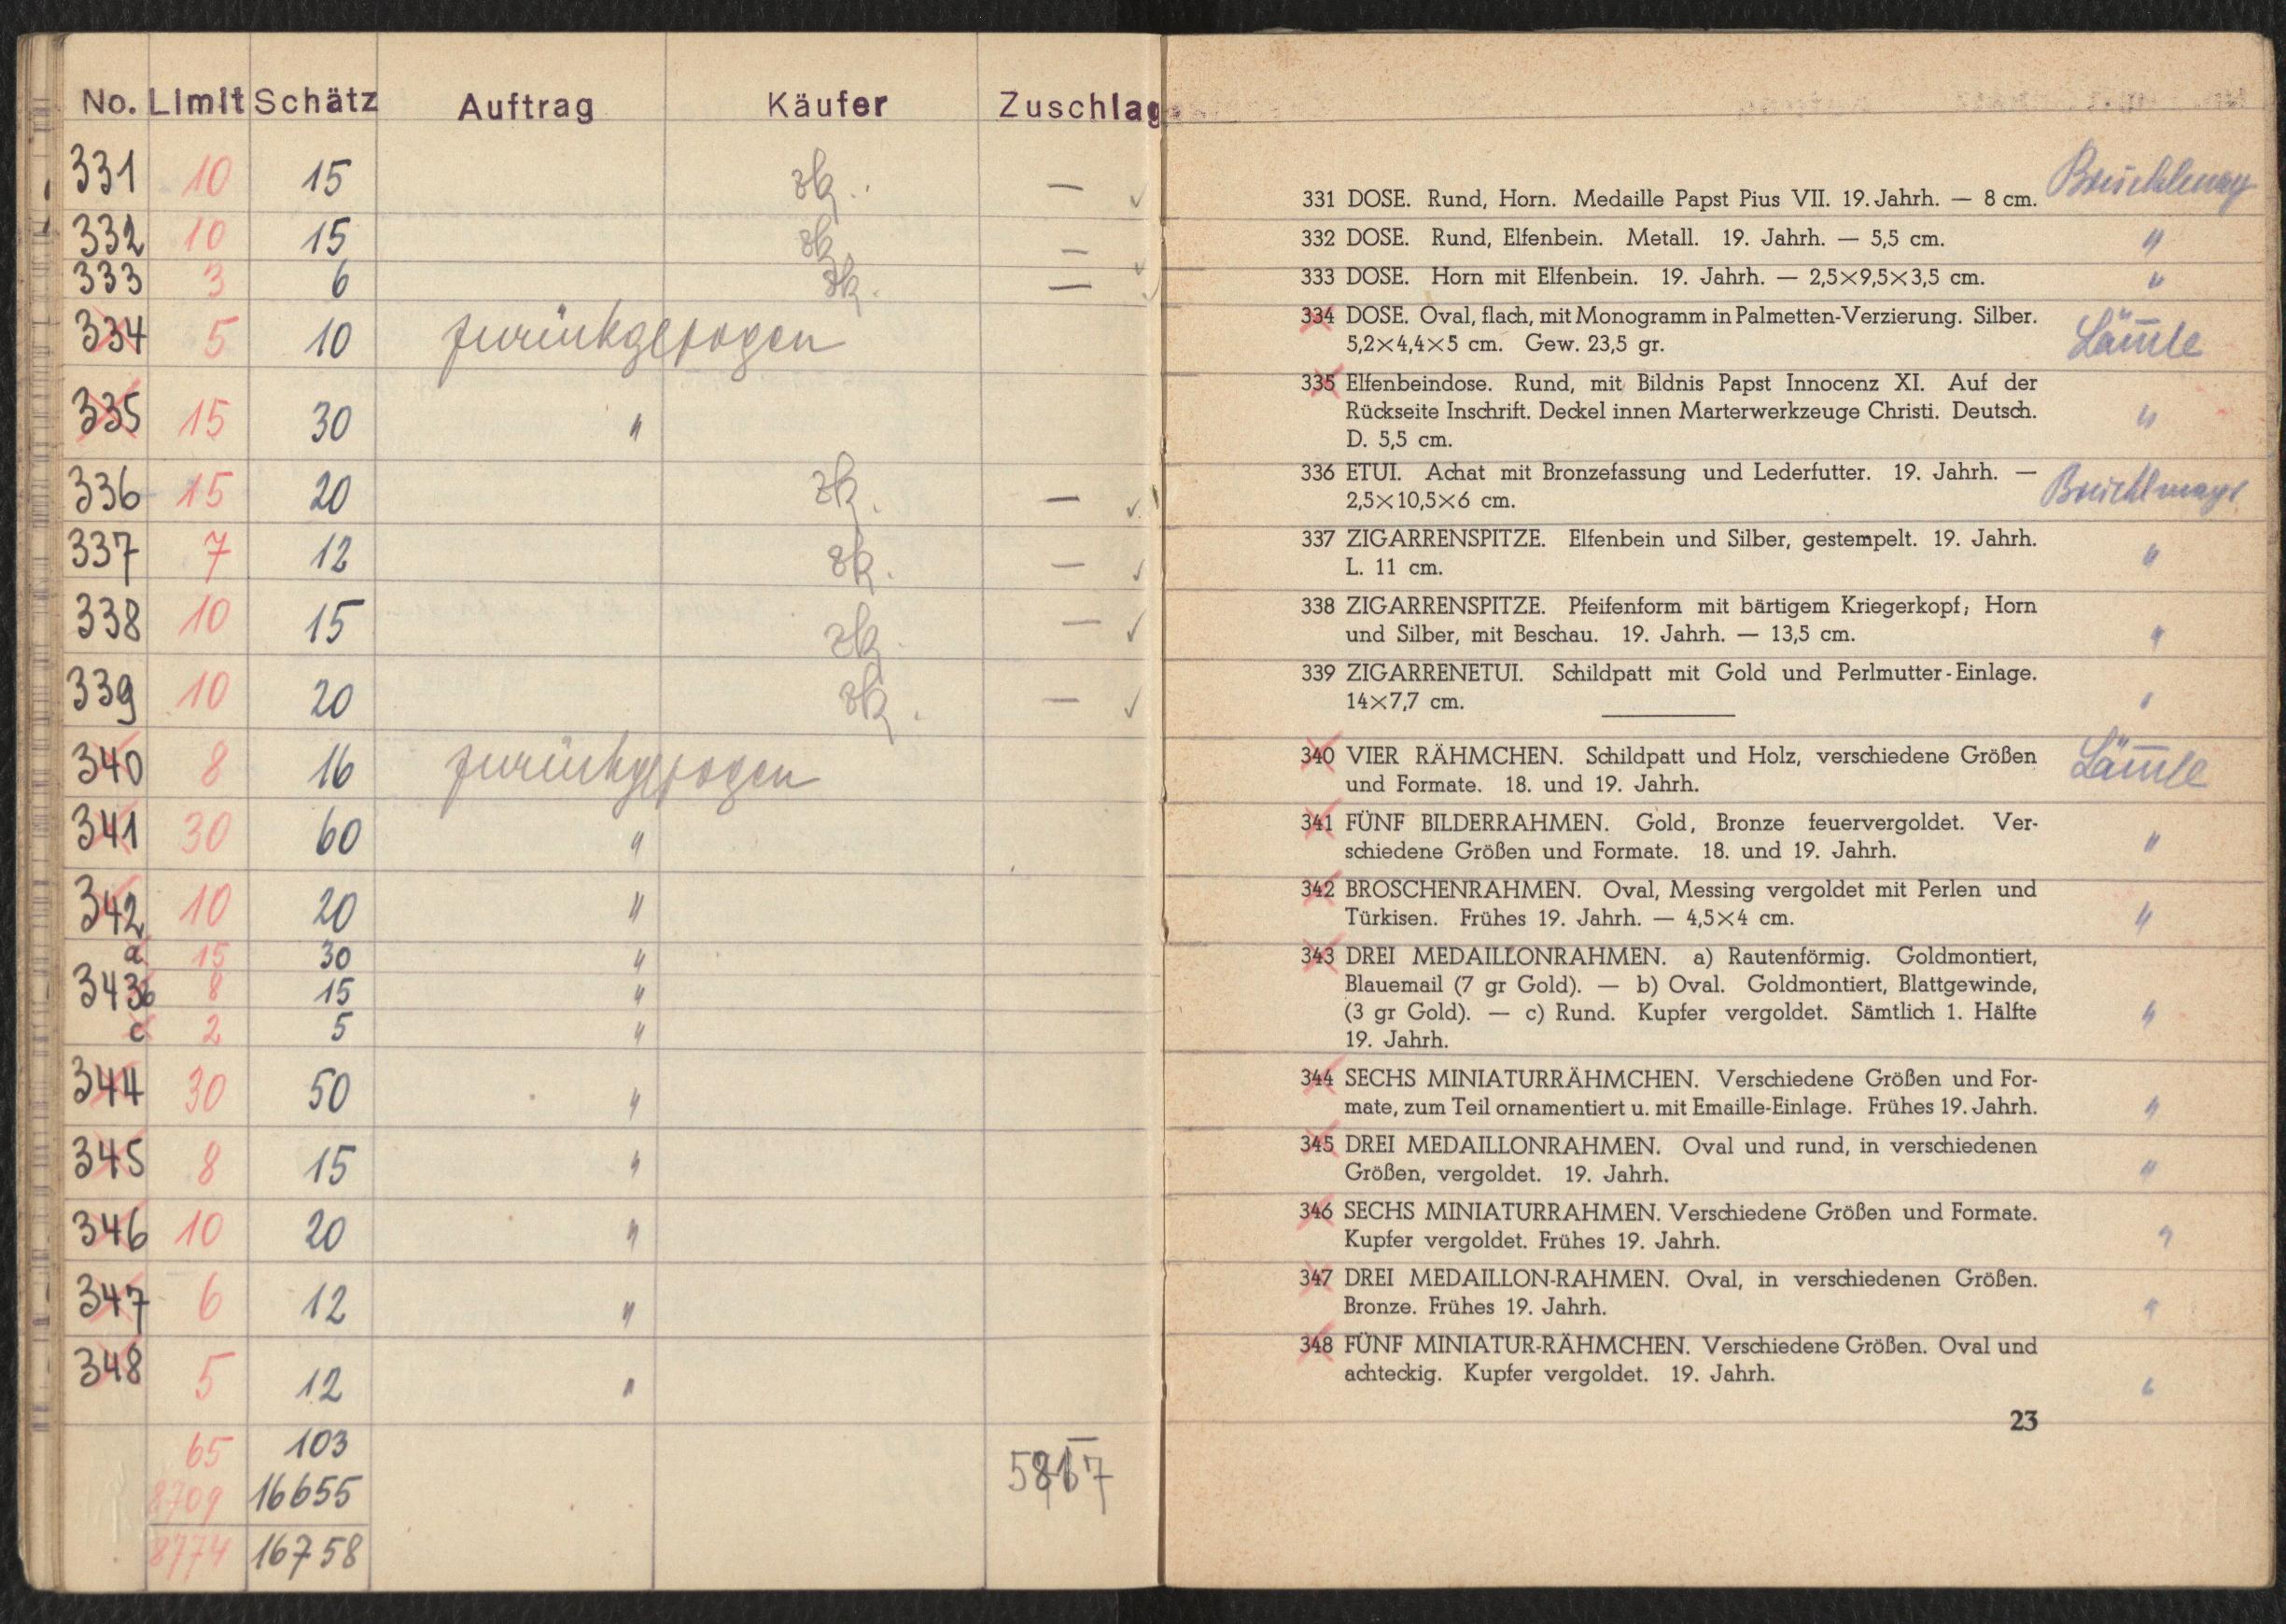 No. Limit Schätz Auftrag Käufer Zuschlag
331 10 15 zk. — ✓
332 10 15 zk. — ✓
333 3 6 zk. — ✓
334 5 10 zurückgezogen
335 15 30 "
336 15 20 zk. — ✓
337 7 12 zk. — ✓
338 10 15 zk. — ✓
339 10 20 zk. — ✓
340 8 16 zurückgezogen
341 30 60 "
342 10 20 "
a 15 30 "
343 b 8 15 "
c 2 5 "
344 30 50 "
345 8 15 "
346 10 20 "
347 6 12 "
348 5 12 "
65 103
8709 16655
8774 16758
331 DOSE. Rund, Horn. Medaille Papst Pius VII. 19. Jahrh. — 8 cm.
332 DOSE. Rund, Elfenbein. Metall. 19. Jahrh. — 5,5 cm. "
333 DOSE. Horn mit Elfenbein. 19. Jahrh. — 2,5×9,5×3,5 cm. "
334 DOSE. Oval, flach, mit Monogramm in Palmetten-Verzierung. Silber.
5,2×4,4×5 cm. Gew. 23,5 gr. Läm̄le
335 Elfenbeindose. Rund, mit Bildnis Papst Innocenz XI. Auf der
Rückseite Inschrift. Deckel innen Marterwerkzeuge Christi. Deutsch. "
D. 5,5 cm.
336 ETUI. Achat mit Bronzefassung und Lederfutter. 19. Jahrh. —
2,5×10,5×6 cm.
337 ZIGARRENSPITZE. Elfenbein und Silber, gestempelt. 19. Jahrh. "
L. 11 cm.
338 ZIGARRENSPITZE. Pfeifenform mit bärtigem Kriegerkopf; Horn
und Silber, mit Beschau. 19. Jahrh. — 13,5 cm. "
339 ZIGARRENETUI. Schildpatt mit Gold und Perlmutter-Einlage.
14×7,7 cm. "
340 VIER RÄHMCHEN. Schildpatt und Holz, verschiedene Größen Läm̄le
und Formate. 18. und 19. Jahrh.
341 FÜNF BILDERRAHMEN. Gold, Bronze feuervergoldet. Ver-
schiedene Größen und Formate. 18. und 19. Jahrh. "
342 BROSCHENRAHMEN. Oval, Messing vergoldet mit Perlen und
Türkisen. Frühes 19. Jahrh. — 4,5×4 cm. "
343 DREI MEDAILLONRAHMEN. a) Rautenförmig. Goldmontiert,
Blauemail (7 gr Gold). — b) Oval. Goldmontiert, Blattgewinde,
(3 gr Gold). — c) Rund. Kupfer vergoldet. Sämtlich 1. Hälfte "
19. Jahrh.
344 SECHS MINIATURRÄHMCHEN. Verschiedene Größen und For-
mate, zum Teil ornamentiert u. mit Emaille-Einlage. Frühes 19. Jahrh. "
345 DREI MEDAILLONRAHMEN. Oval und rund, in verschiedenen
Größen, vergoldet. 19. Jahrh. "
346 SECHS MINIATURRAHMEN. Verschiedene Größen und Formate.
Kupfer vergoldet. Frühes 19. Jahrh. "
347 DREI MEDAILLON-RAHMEN. Oval, in verschiedenen Größen.
Bronze. Frühes 19. Jahrh. "
348 FÜNF MINIATUR-RÄHMCHEN. Verschiedene Größen. Oval und
achteckig. Kupfer vergoldet. 19. Jahrh. "
23